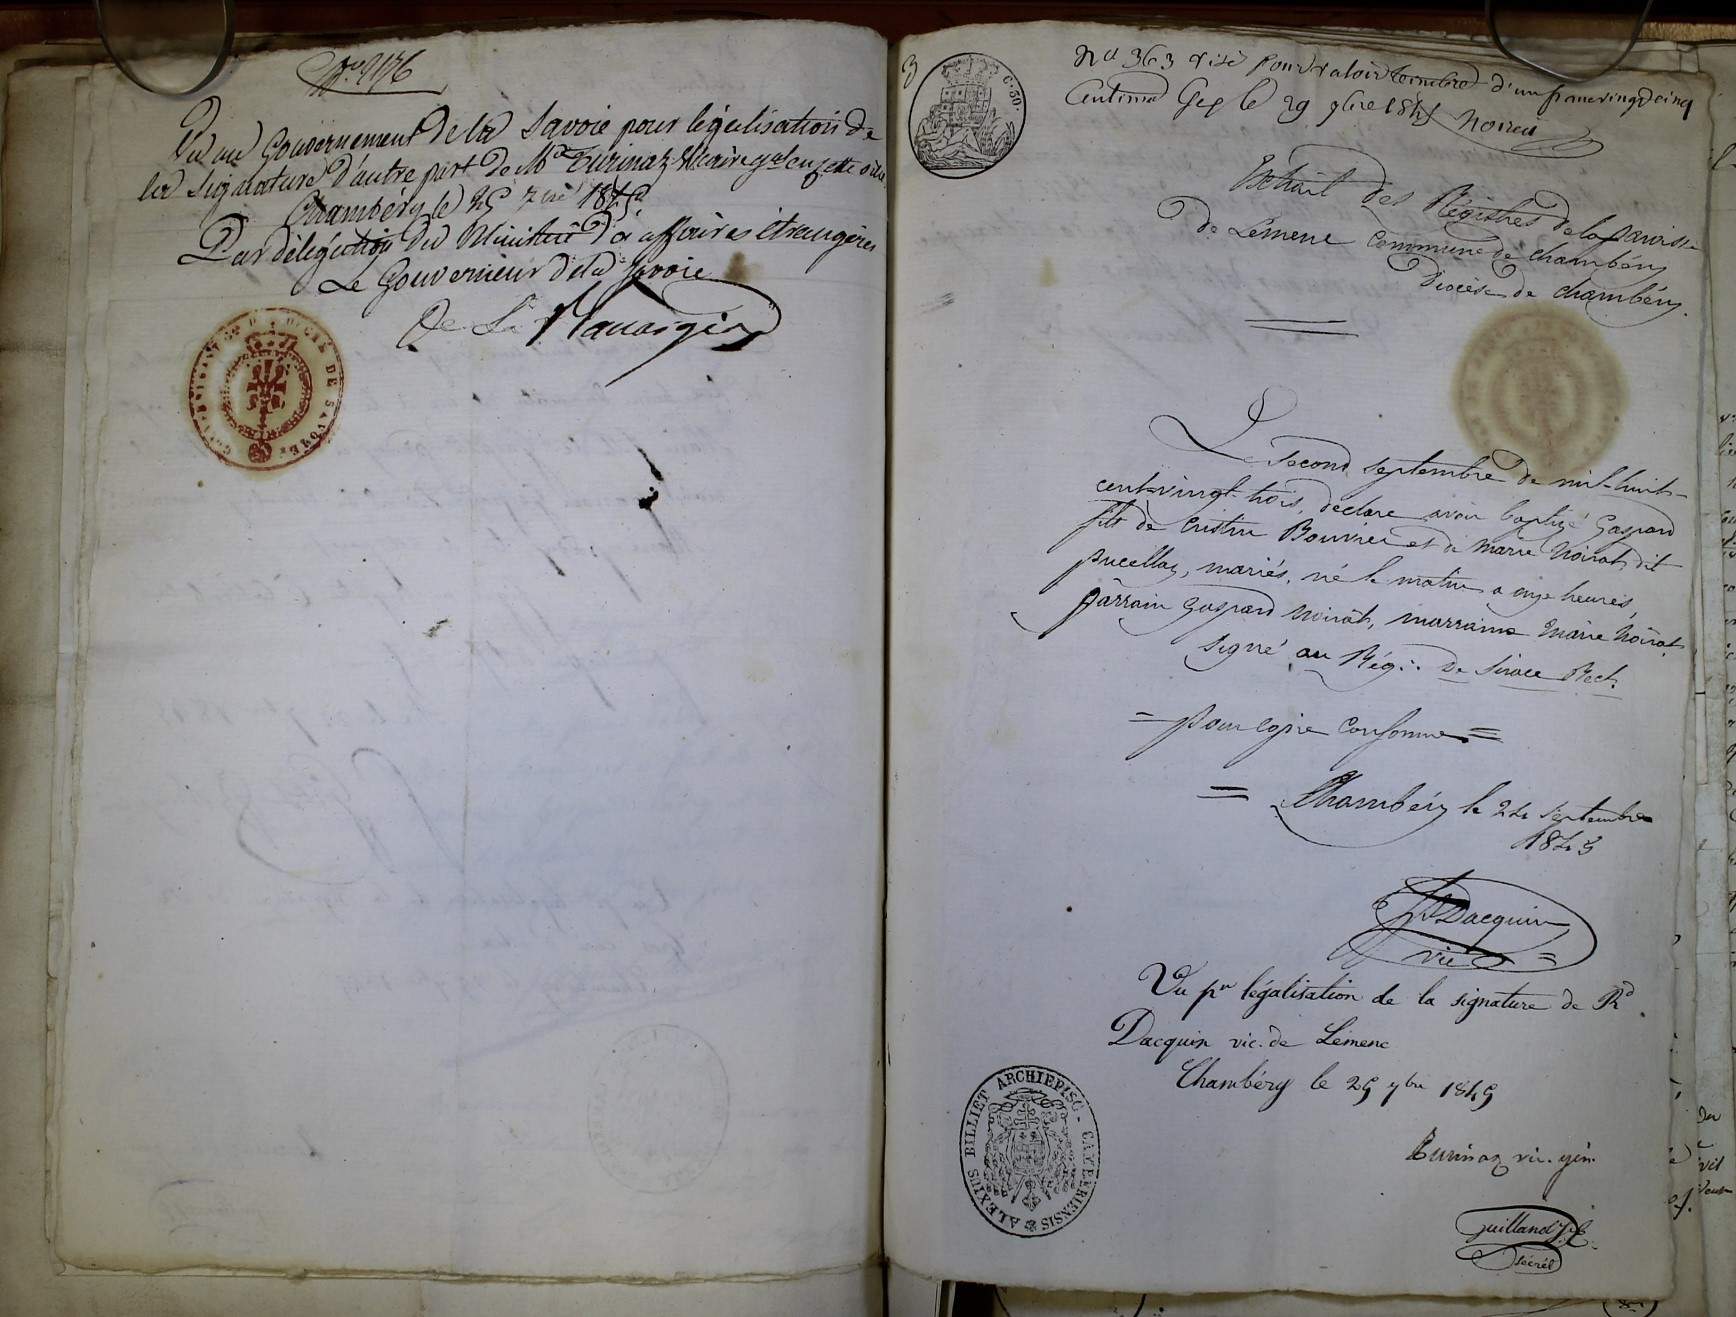 N° 2176
Vu au Gouvernement de la Savoie pour légalisation de
la signature d'autre part de Mr Turinaz Vicaire gal en cette ville
Chambéry le 25 7bre 1845
Par délégation du Ministre des affaires étrangères
Le Gouverneur de la Savoie
De La
GOUVERNEMENT DU DUCHÉ DE SAVOYE
3
C. 50.
No 363 visé pour valoir timbre d'un franc vingt cinq
Centimes Gex le 29 9bre 1845
Extrait des Régistres de la paroisse
de Lémenc commune de Chambéry
Diocèse de Chambéry.
Le second septembre de mil-huit-
cent-vingt-trois, déclare avoir baptizé Gaspard
fils de Cristin Bouvier et de Marie Noirat dit
pucellaz, mariés, né le matin a onze heures,
parrain Gaspard Noirat, marraine Marie Noirat.
signé au Rég: De Rect.
= pour copie conforme =
= Chambéry le 24 septembre
1845
Dacquin
vic
Vu pr légalisation de la signature de Rd
Dacquin vic. de Lémenc
Chambéry le 25 7bre 1845
ALEXIUS BILLIET ARCHIEPISC. CAMBERIENSIS
Turinaz vic. gén.
Guilland
secrét